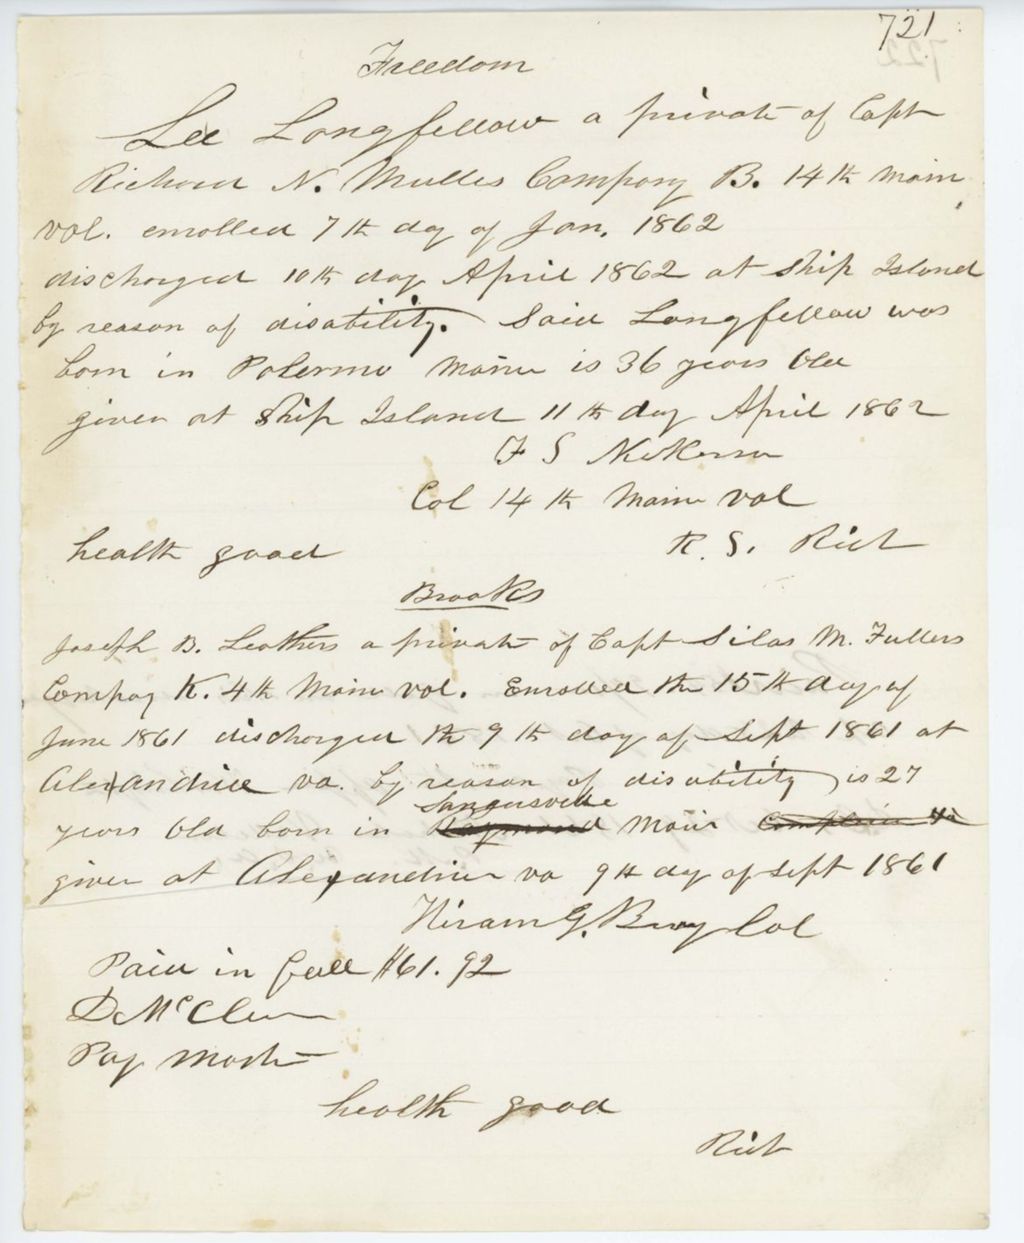 721
Freedom
Lee Longfellow a private of Capt
Richard N. Mulles Company B. 14th Main
vol. enrolled 7th day of Jan. 1862
discharged 10th day April 1862 at Ship Island
by reason of disability. Said Longfellow was
born in Palermo Maine is 36 years Old
given at Ship Island 11th day April 1862
F S Nickerson
Col 14th Maine vol
health good R. S. Rich
Brooks
Joseph B. Leathers a private of Capt Silas M. Fullers
Compay K. 4th Maine vol. Enrolled the 15th day of
June 1861 discharged the 9th day of Sept 1861 at
Alexandria va. by reason of disability is 27
Sangerville
years Old born in Raymond Maine Complexion
given at Alexandria va 9th day of Sept 1861
Hiram G. Berry Col
Paid in full $61.92
D McClure
Pay Master
health good
Rich